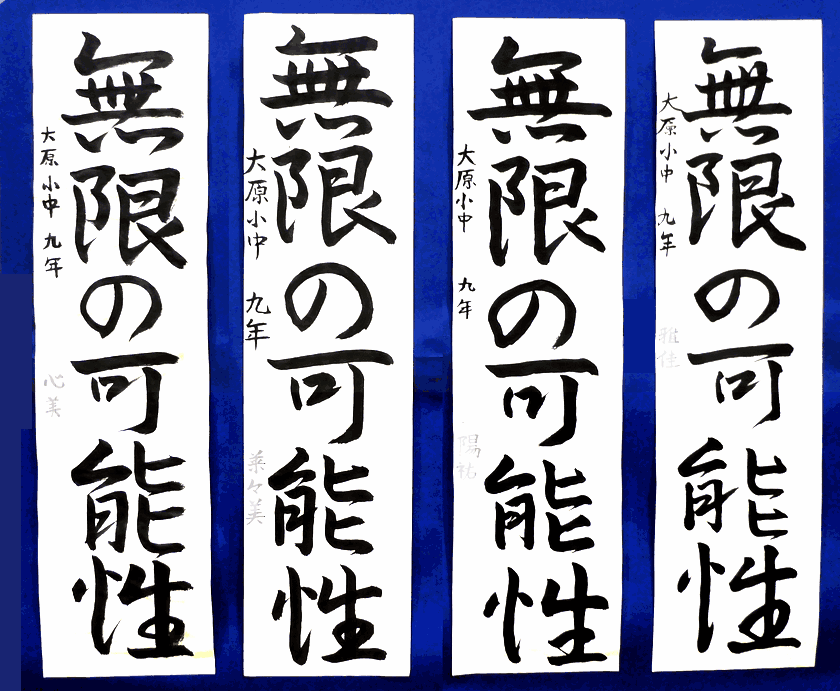 無限の可能性
大原小中 九年
心美
無限の可能性
大原小中 九年
菜々美
無限の可能性
大原小中 九年
陽祐
無限の可能性
大原小中 九年
雅佳